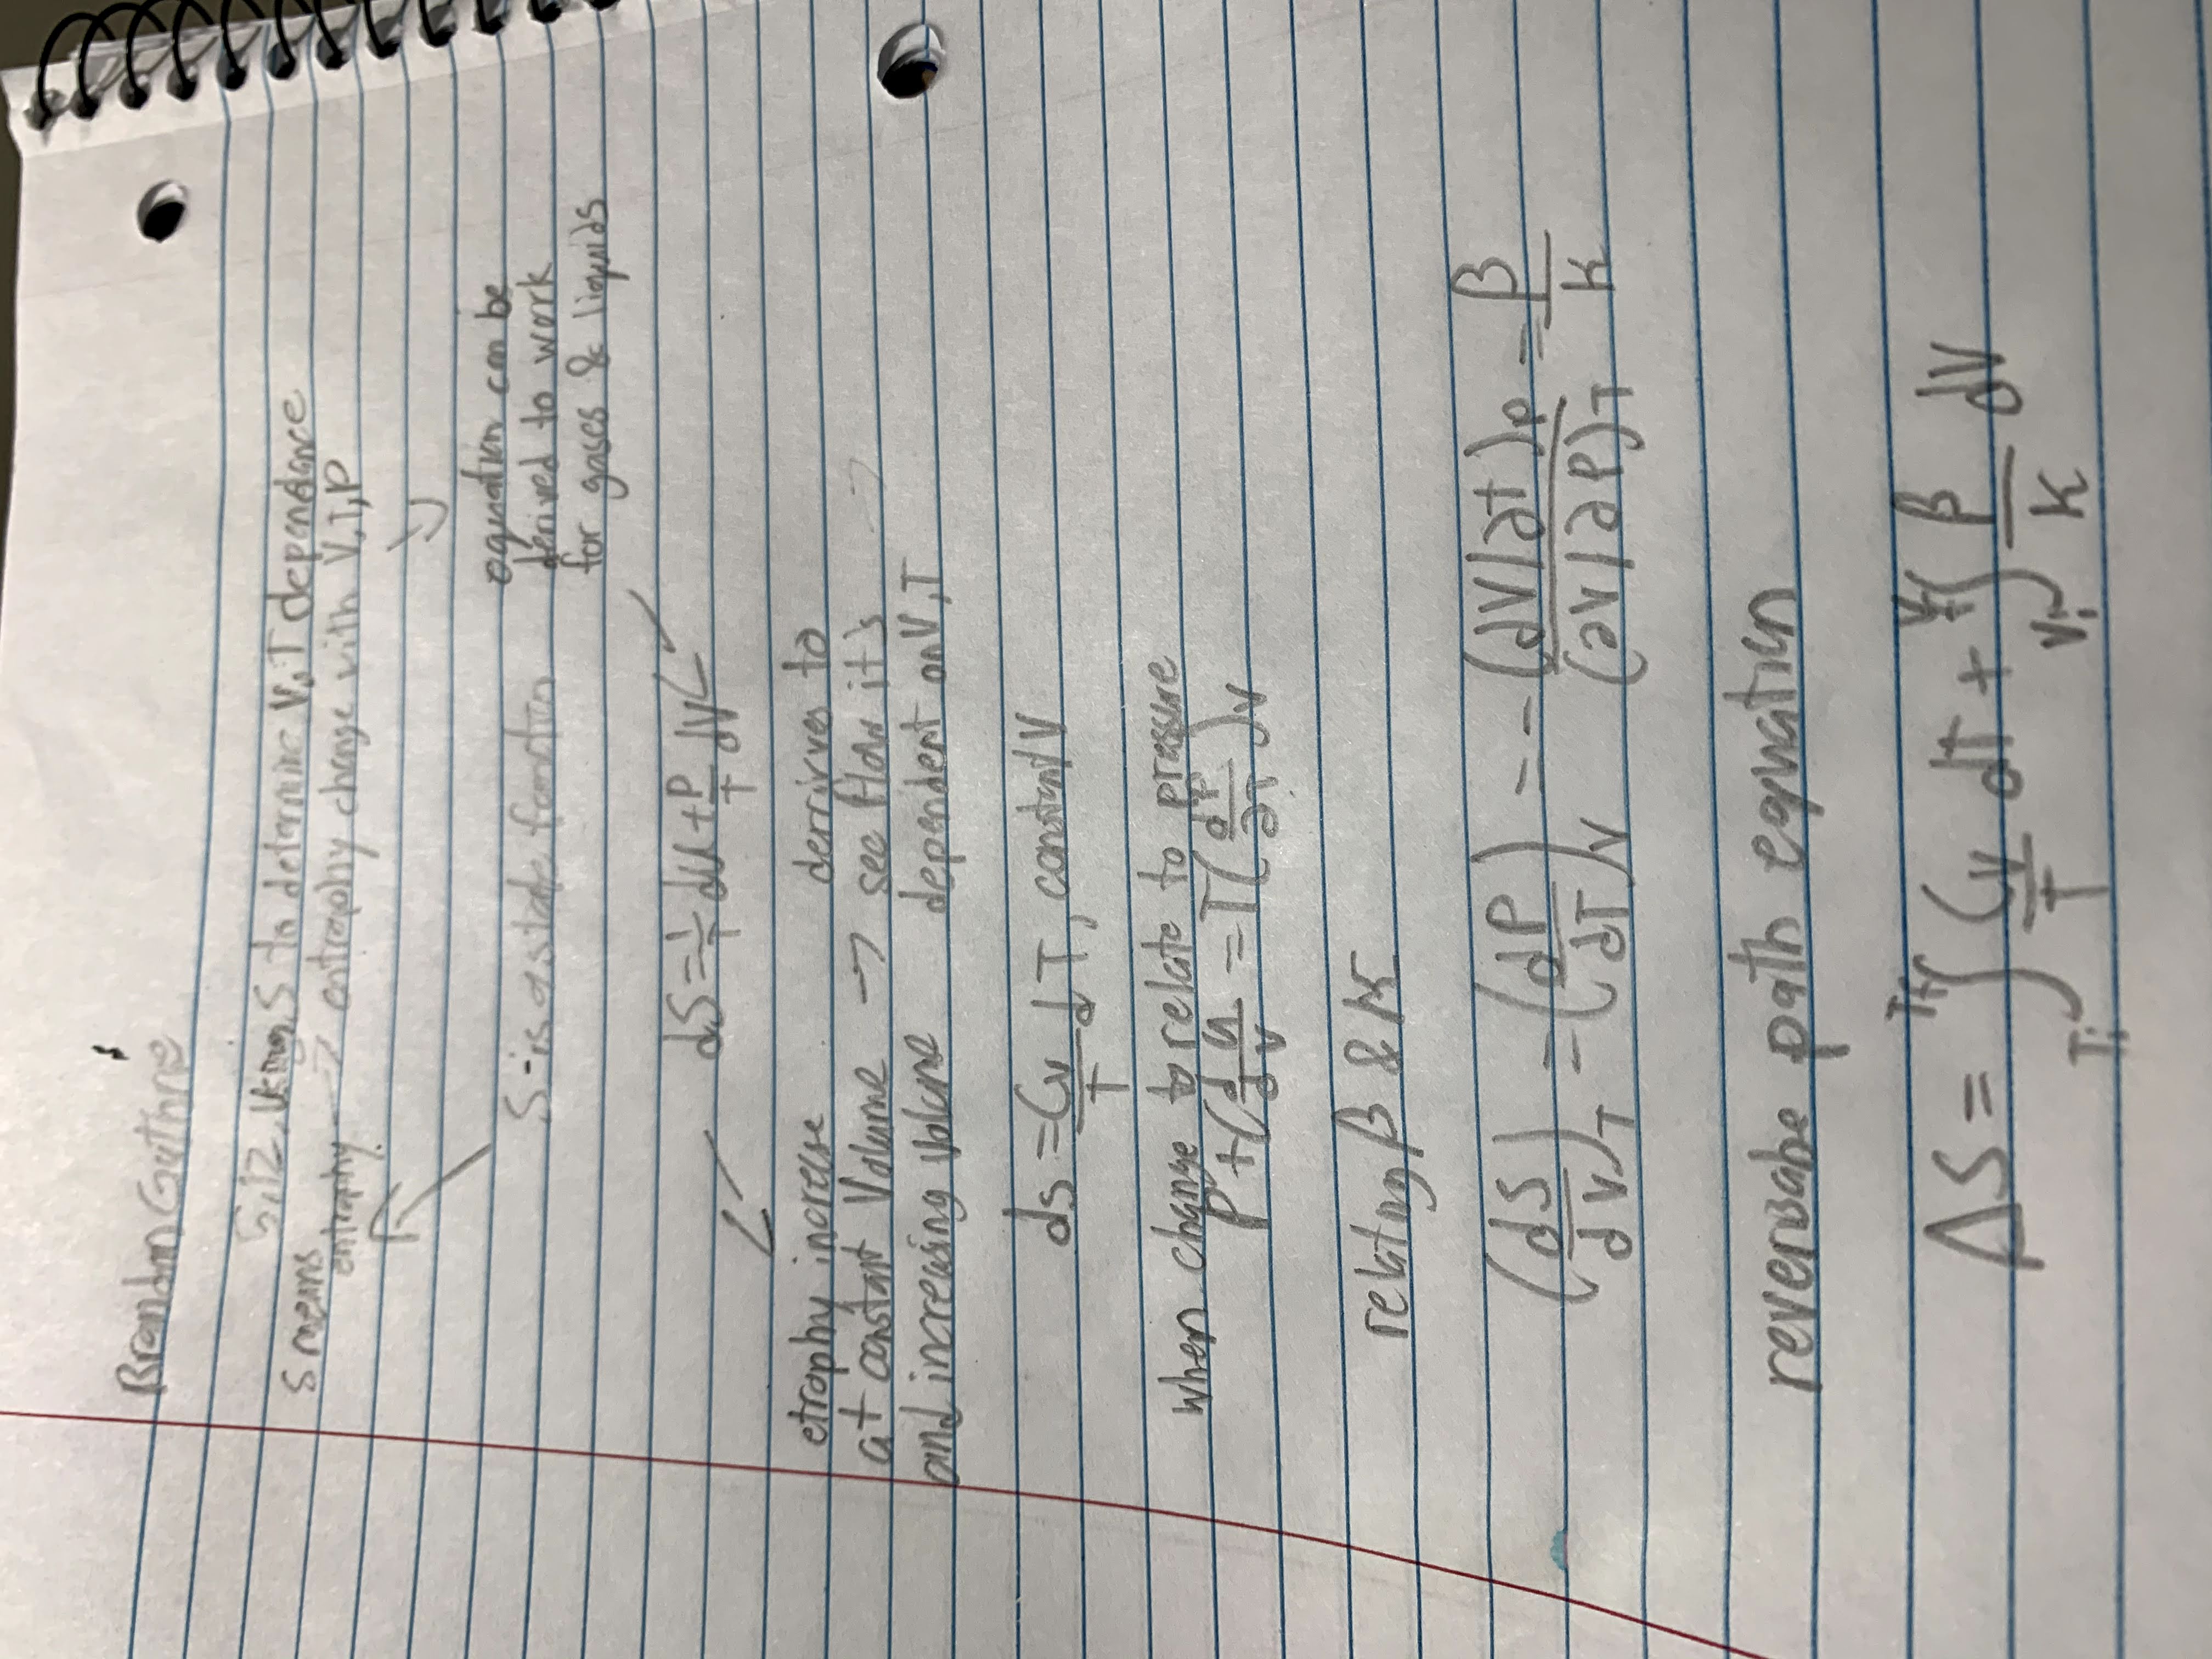 Brandon Guthrie
5.12, Using S to determine V, T dependance
S means
entrophy -> entrophy change with V,T,P
S - is a state function
equation can be
derived to work
for gases & liquids
dS = 1/T dU + P/T dV
etrophy increase
at constant Volume
and increasing Volume
-> derrirves to
see How it's
dependent on V,T ->
ds = Cv/T dT, constant V
when change to relate to pressure
P + (dU/dV = T(dP/∂T)V
relating β & K
(dS/dV)T = (dP/dT)V = -(∂V/∂t)P/(∂V/∂P)T = β/K
reversabe path equation
ΔS = ∫Ti Tf Cv/T dT + ∫Vi Vf β/K dV